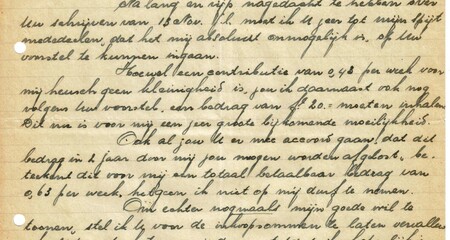 Na lang en rijp nagedacht te hebben over
Uw schrijven van 13 Nov. j.l. moet ik U zeer tot mijn spijt
mededeelen, dat het mij absoluut onmogelijk is, op Uw
voorstel te kunnen ingaan.
Hoewel een contributie van 0,42 per week voor
mij heusch geen kleinigheid is, zou ik daarnaast ook nog
volgens Uw voorstel, een bedrag van fl 20.= moeten inhalen
Dit nu is voor mij een zeer groote bijkomende moeilijkheid.
Ook al zou U er mee accoord gaan, dat dit
bedrag in 2 jaar door mij zou mogen worden afgelost, be-
teekent dit voor mij een totaal betaalbaar bedrag van
0,63 per week, hetgeen ik niet op mij durf te nemen.
Om echter nogmaals mijn goede wil te
toonen, stel ik U voor de inkoopsommen te laten vervallen